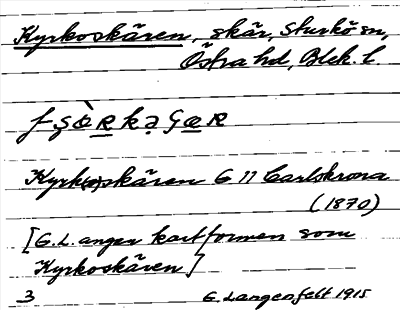 Kyrkoskären, skär, Sturkö sn,
Östra hd, Blek. l.
Kyrk(o)skären G 11 Carlskrona
(1870)
[G.L. anger kartformen som
Kyrkoskären]
3 G. Langenfelt 1915